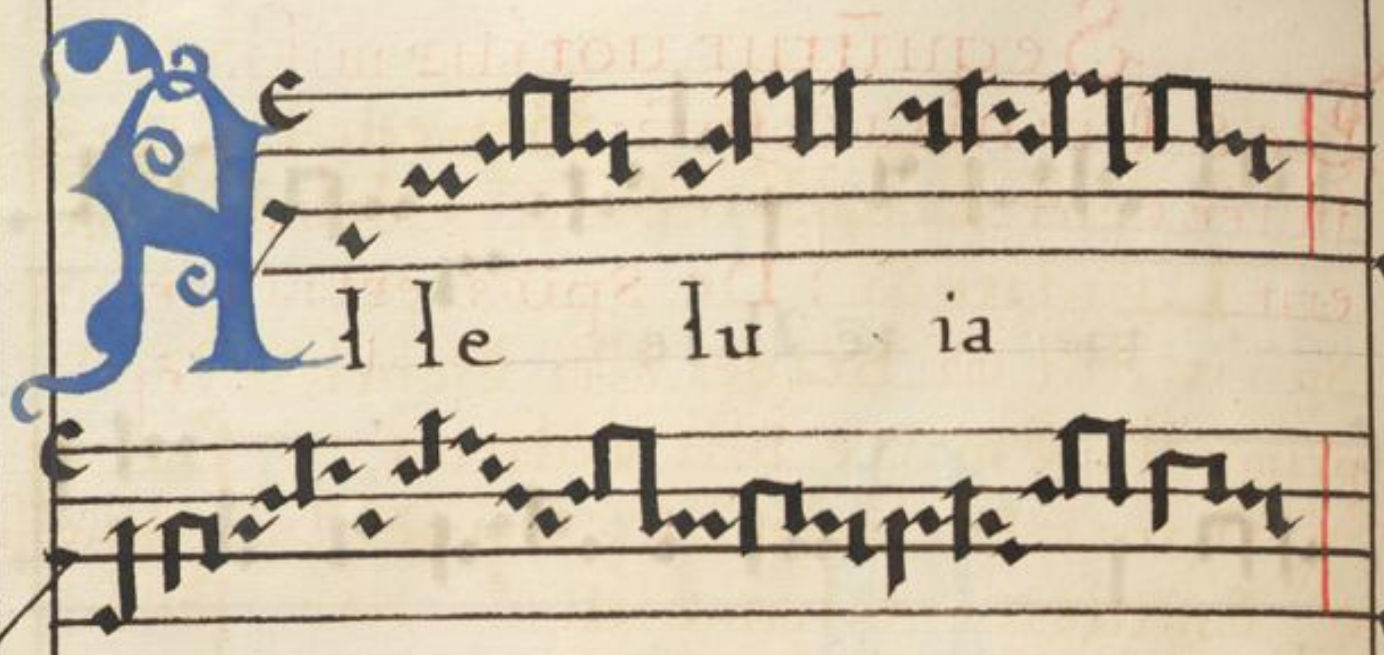 Al le lu ia